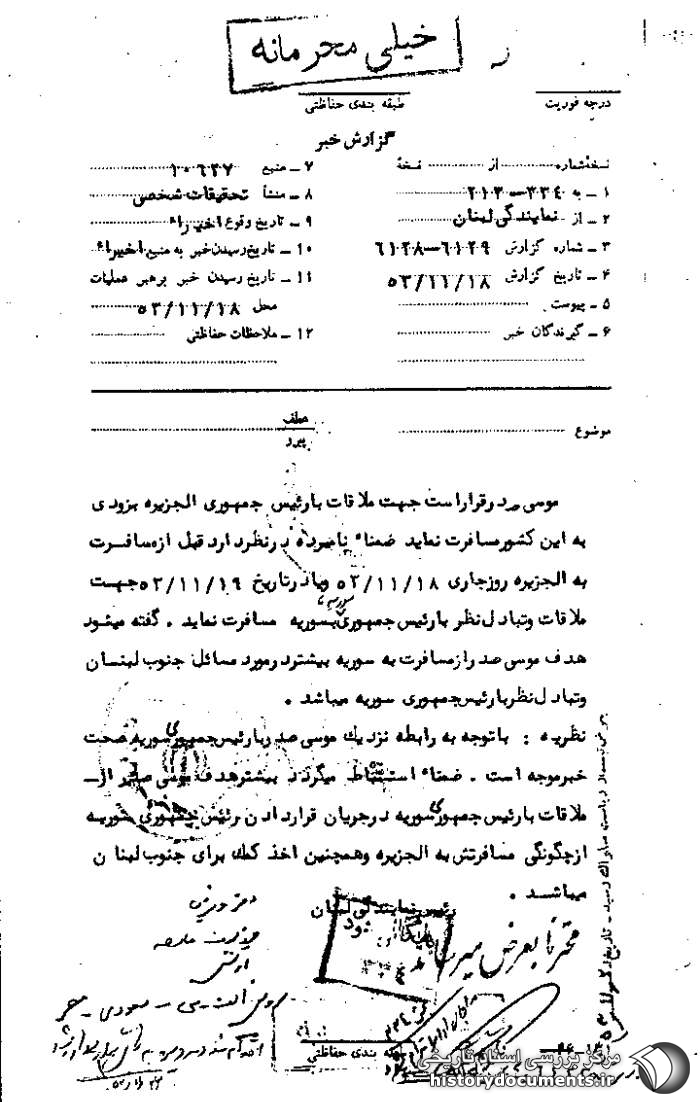 خیلی محرمانه
درجه فوریت
طبقه بندی حفاظتی
گزارش خبر
نسخهٔ شماره از نسخهٔ
۱ ـ به ۳۳۴ـ۲۱۳
۲ ـ از نمایندگی لبنان
۳ ـ شماره گزارش ۶۱۲۹ـ۶۱۲۸
۴ ـ تاریخ گزارش ۵۳/۱۱/۱۸
۵ ـ پیوست
۶ ـ گیرندگان خبر
۷ ـ منبع ۱۰۶۳۷
۸ ـ منشأ تحقیقات شخصی
۹ ـ تاریخ وقوع اخیراً
۱۰ ـ تاریخ رسیدن خبر به منبع اخیراً
۱۱ ـ تاریخ رسیدن خبر برهبر عملیات
محل ۵۳/۱۱/۱۸
۱۲ ـ ملاحظات حفاظتی
موضوع
عطف
پیرو
موسی صدر قرار است جهت ملاقات با رئیس جمهوری الجزیره بزودی
به این کشور مسافرت نماید ضمناً نامبرده در نظر دارد قبل از مسافرت
به الجزیره روز جاری ۵۳/۱۱/۱۸ و یا در تاریخ ۵۳/۱۱/۱۹ جهت
ملاقات و تبادل نظر با رئیس جمهوری سوریه بسوریه مسافرت نماید . گفته میشود
هدف موسی صدر از مسافرت به سوریه بیشتر در مورد مسائل جنوب لبنسان
و تبادل نظر با رئیس جمهوری سوریه میباشد .
نظریه : با توجه به رابطه نزدیک موسی صدر با رئیس جمهوری سوریه صحت
خبر موجه است . ضمناً استنباط میگردد بیشتر هدف موسی صدر از
ملاقات با رئیس جمهوری سوریه در جریان قرار دادن رئیس جمهوری سوریه
از چگونگی مسافرتش به الجزیره و همچنین اخذ کمک برای جنوب لبنان
میباشد .
رئیس نمایندگی لبنان
محترماً بعرض میرساند
طبقه بندی حفاظتی
مرکز بررسی اسناد تاریخی
historydocuments.ir